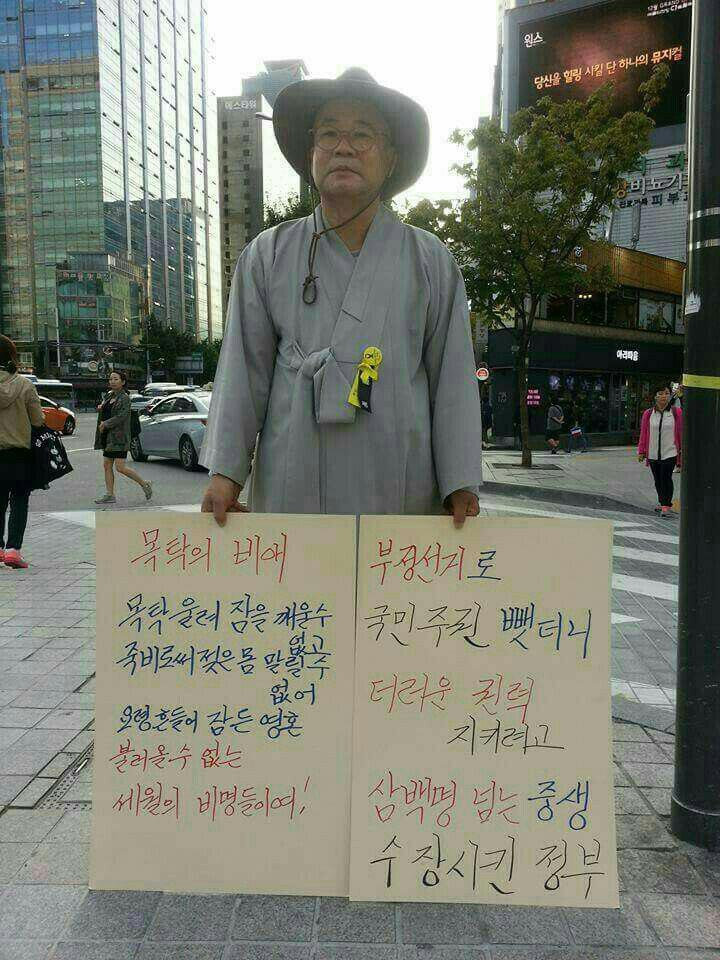 12월 GRAND
원스
당신을 힐링 시킬 단 하나의 뮤지컬
에스타워
비뇨기
피부
아리따움
목탁의 비애
목탁울려 잠을 깨울수
없고
죽비로써 젖은 몸 말릴수
없어
요령흔들어 잠든 영혼
불러올수 없는
세월의 비명들이여!
부정선거로
국민주권 뺏더니
더러운 권력
지키려고
삼백명 넘는 중생
수장시킨 정부